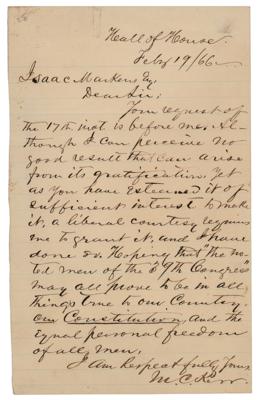 Hall of House.
Feby 19/66
Isaac Markens Esq.
Dear Sir:
Your request of
the 17th inst. is before me. Al-
though I can perceive no
good result that can arise
from its gratification. Yet
as you have esteemed it of
sufficient interest to make
it, a liberal courtesy requires
me to grant it, and I have
done so. Hoping that "the no-
ted men of the 39th Congress"
may all prove to be in all
things true to our Country,
our Constitution, and the
equal personal freedom
of all men,
I am Respectfully Yours
M. C. Kerr